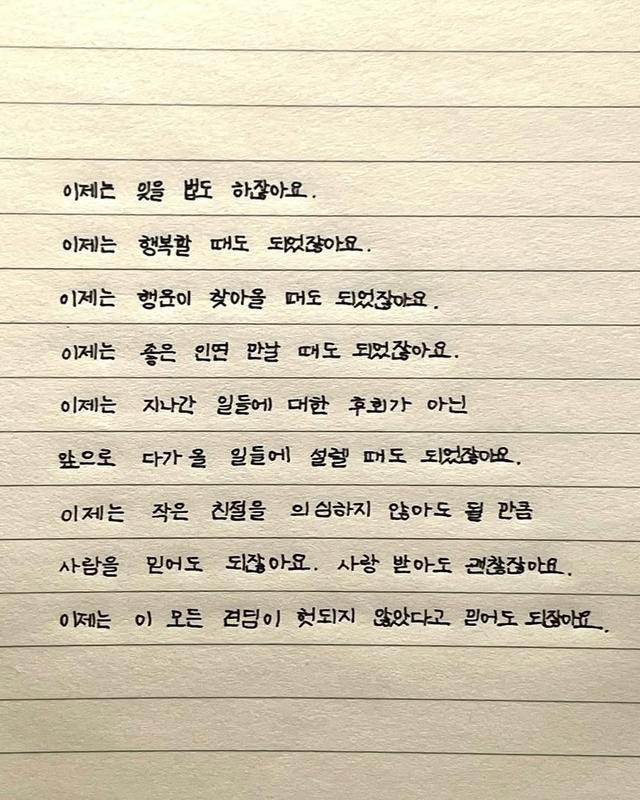 이제는 잊을 법도 하잖아요.
이제는 행복할 때도 되었잖아요.
이제는 행운이 찾아올 때도 되었잖아요.
이제는 좋은 인연 만날 때도 되었잖아요.
이제는 지나간 일들에 대한 후회가 아닌
앞으로 다가올 일들에 설렐 때도 되었잖아요.
이제는 작은 친절을 의심하지 않아도 될 만큼
사람을 믿어도 되잖아요. 사랑 받아도 괜찮잖아요.
이제는 이 모든 견딤이 헛되지 않았다고 믿어도 되잖아요.